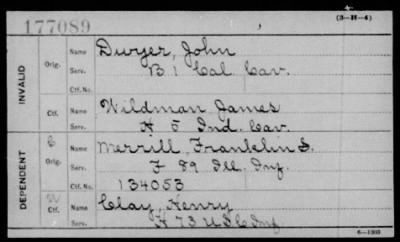 177089
(3-H-4)
INVALID
Orig.
Name Dwyer, John
Serv. B 1 Cal. Cav.
Ctf. No.
Ctf.
Name Wildman James
Serv. H 5 Ind. Cav.
DEPENDENT
C
Orig.
Name Merrill, Franklin S.
Serv. F 89 Ill. Inf.
Ctf. No. 134053
W
Ctf.
Name Clay, Henry
Serv. H 73 U S C Inf
6-1303